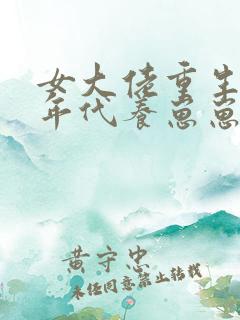 女大佬重生
年代養崽崽
黃守忠
未经同意禁止转载